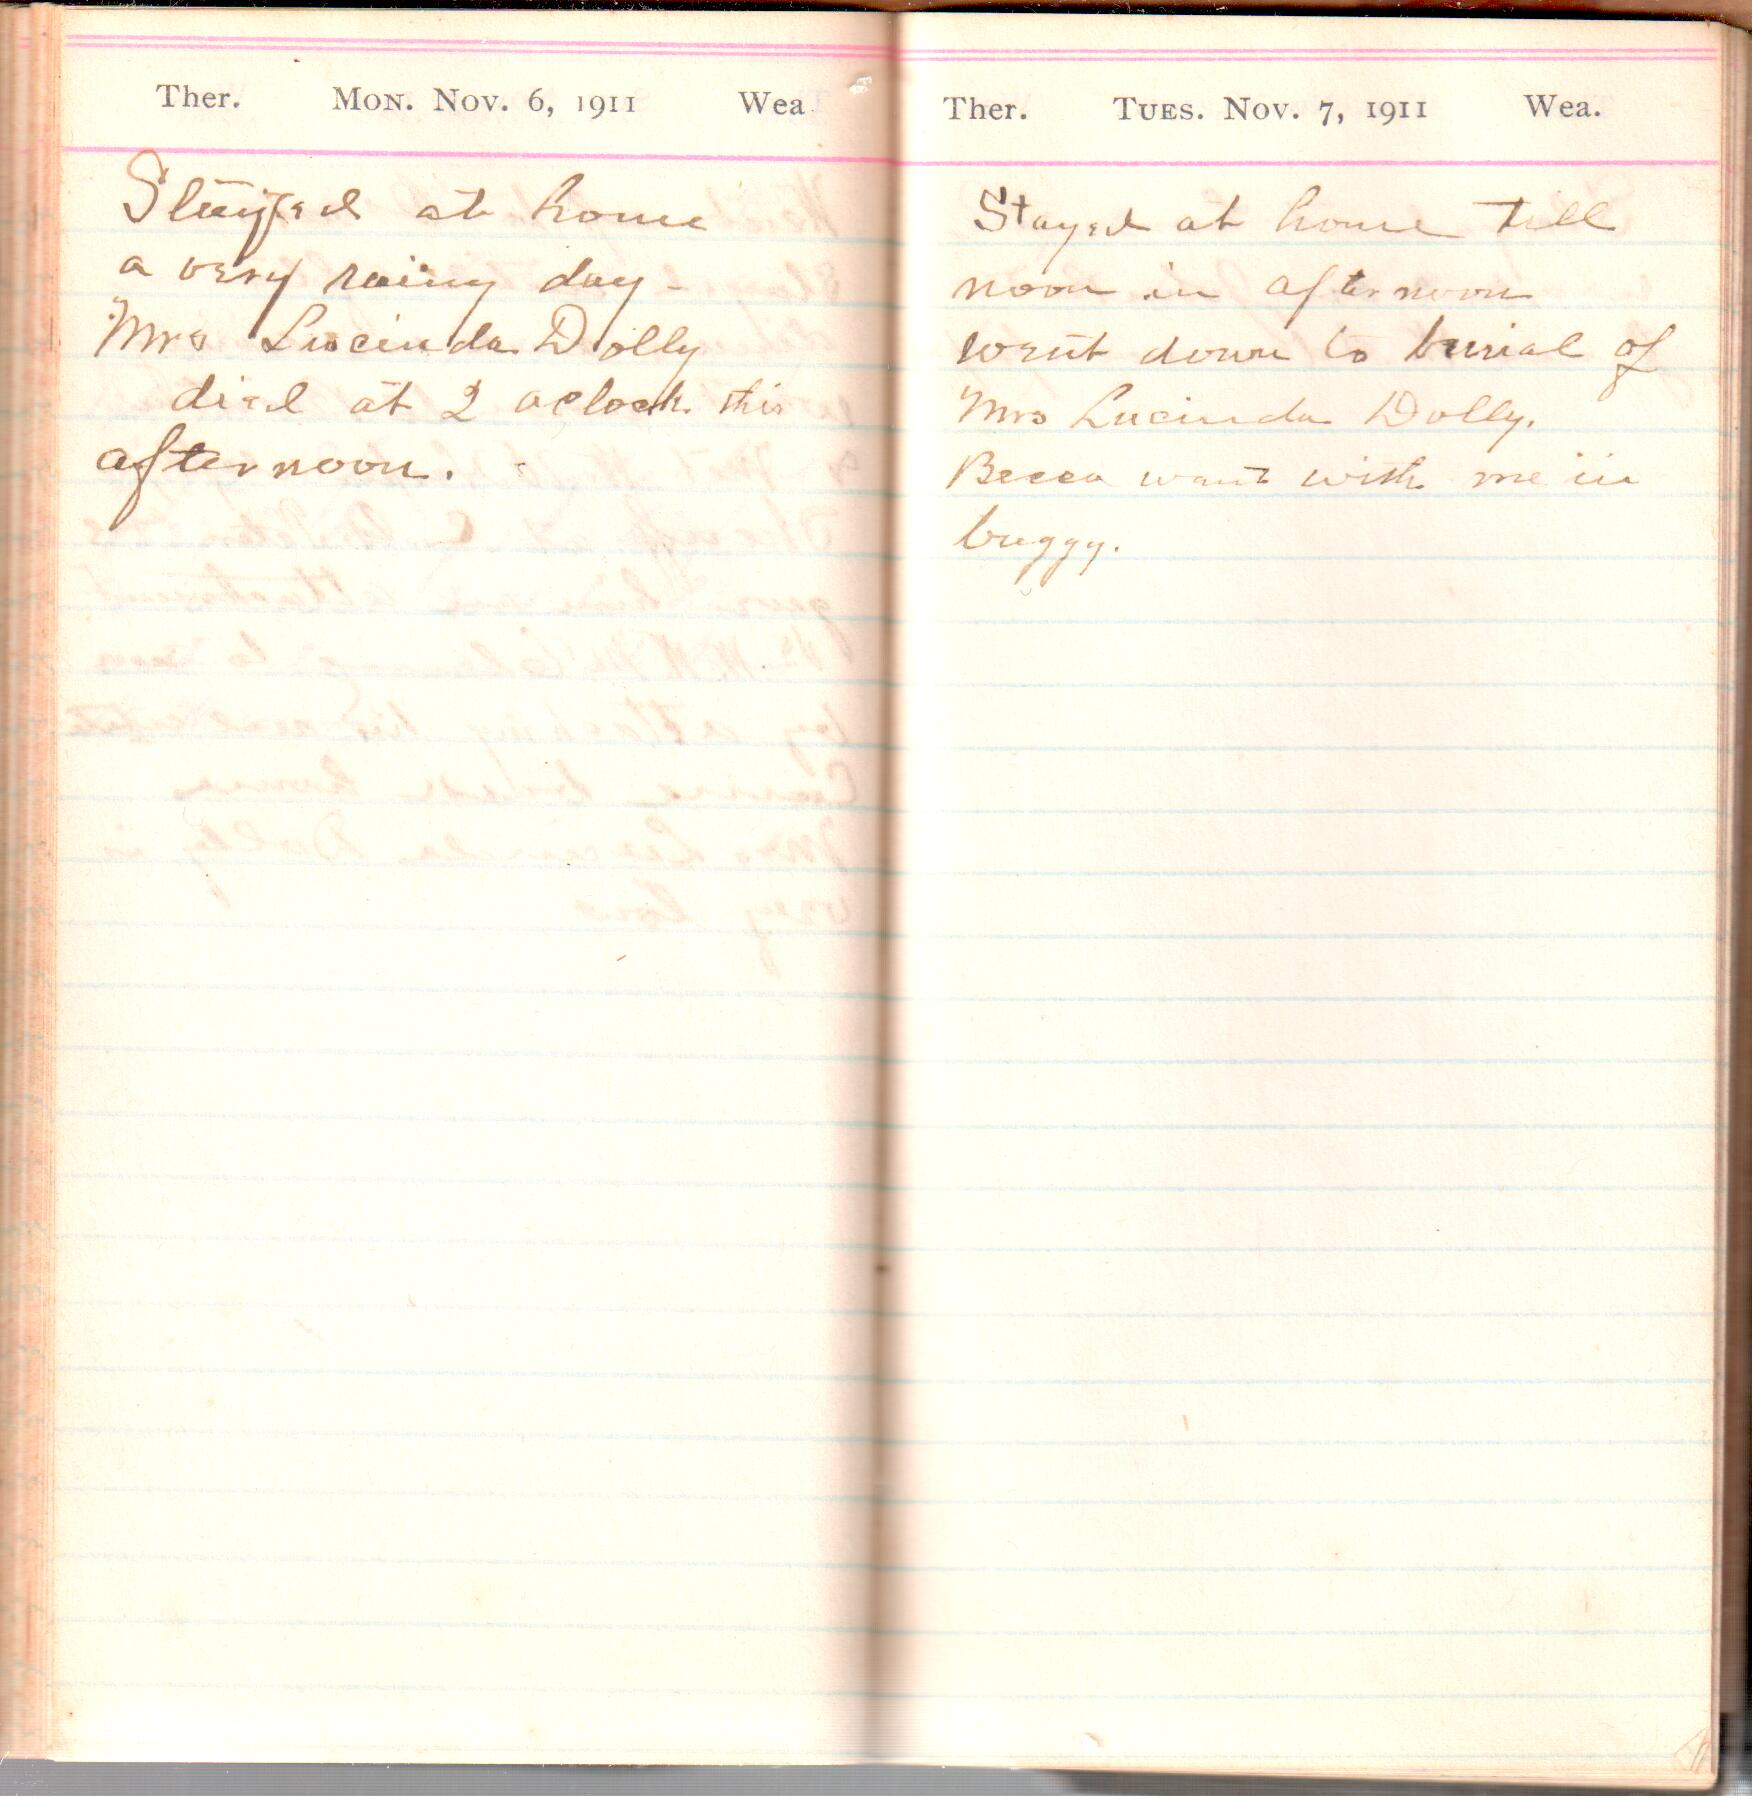 Ther. Mon. Nov. 6, 1911 Wea.
Stayed at home
a very rainy day -
Mrs Lucinda Dolly
died at 2 oclock this
afternoon.
Ther. Tues. Nov. 7, 1911 Wea.
Stayed at home till
noon in afternoon
went down to burial of
Mrs Lucinda Dolly.
Becca went with me in
buggy.